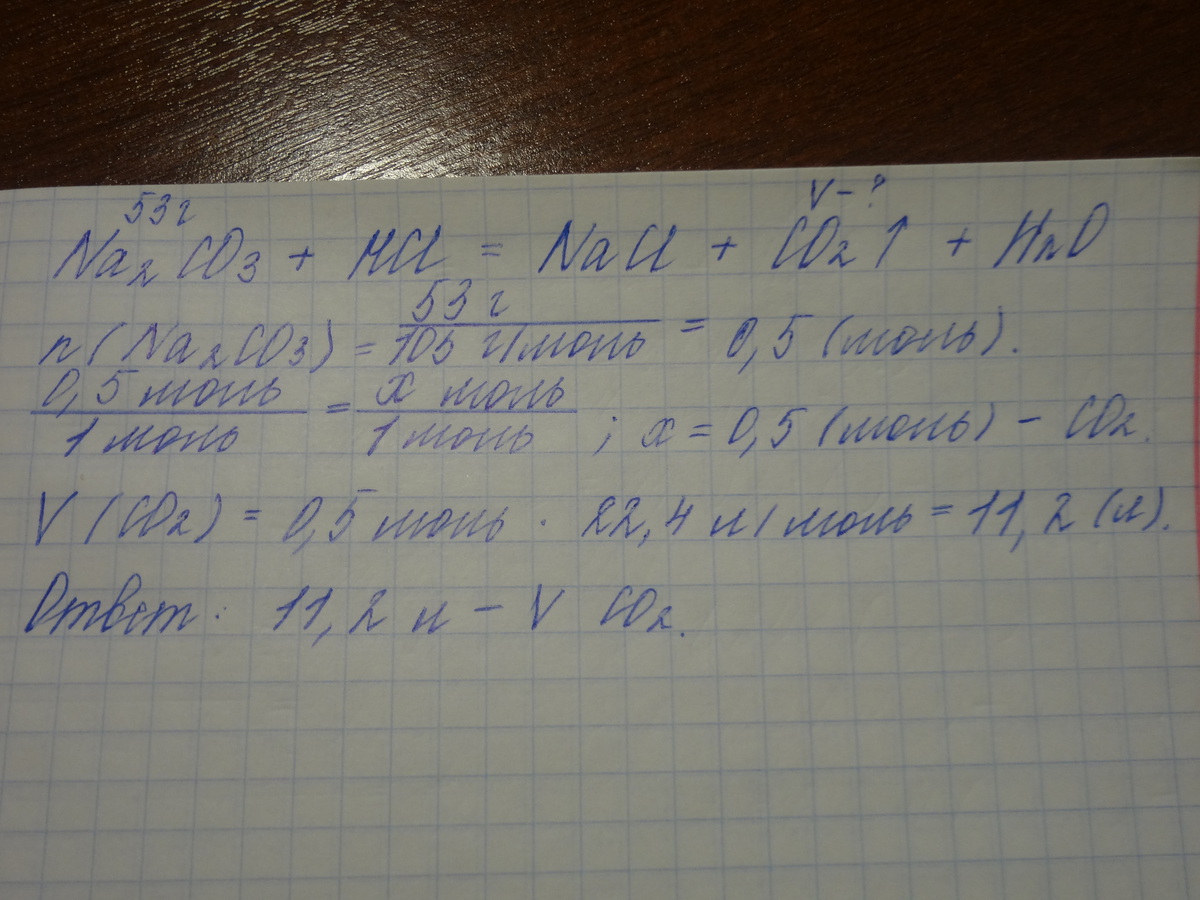 53 г V - ?
Na2CO3 + HCl = NaCl + CO2↑ + H2O
53 г
n (Na2CO3) = 105 г/моль = 0,5 (моль).
0,5 моль = x моль
1 моль 1 моль ; x = 0,5 (моль) - CO2.
V (CO2) = 0,5 моль · 22,4 л/моль = 11,2 (л).
Ответ: 11,2 л - V CO2.